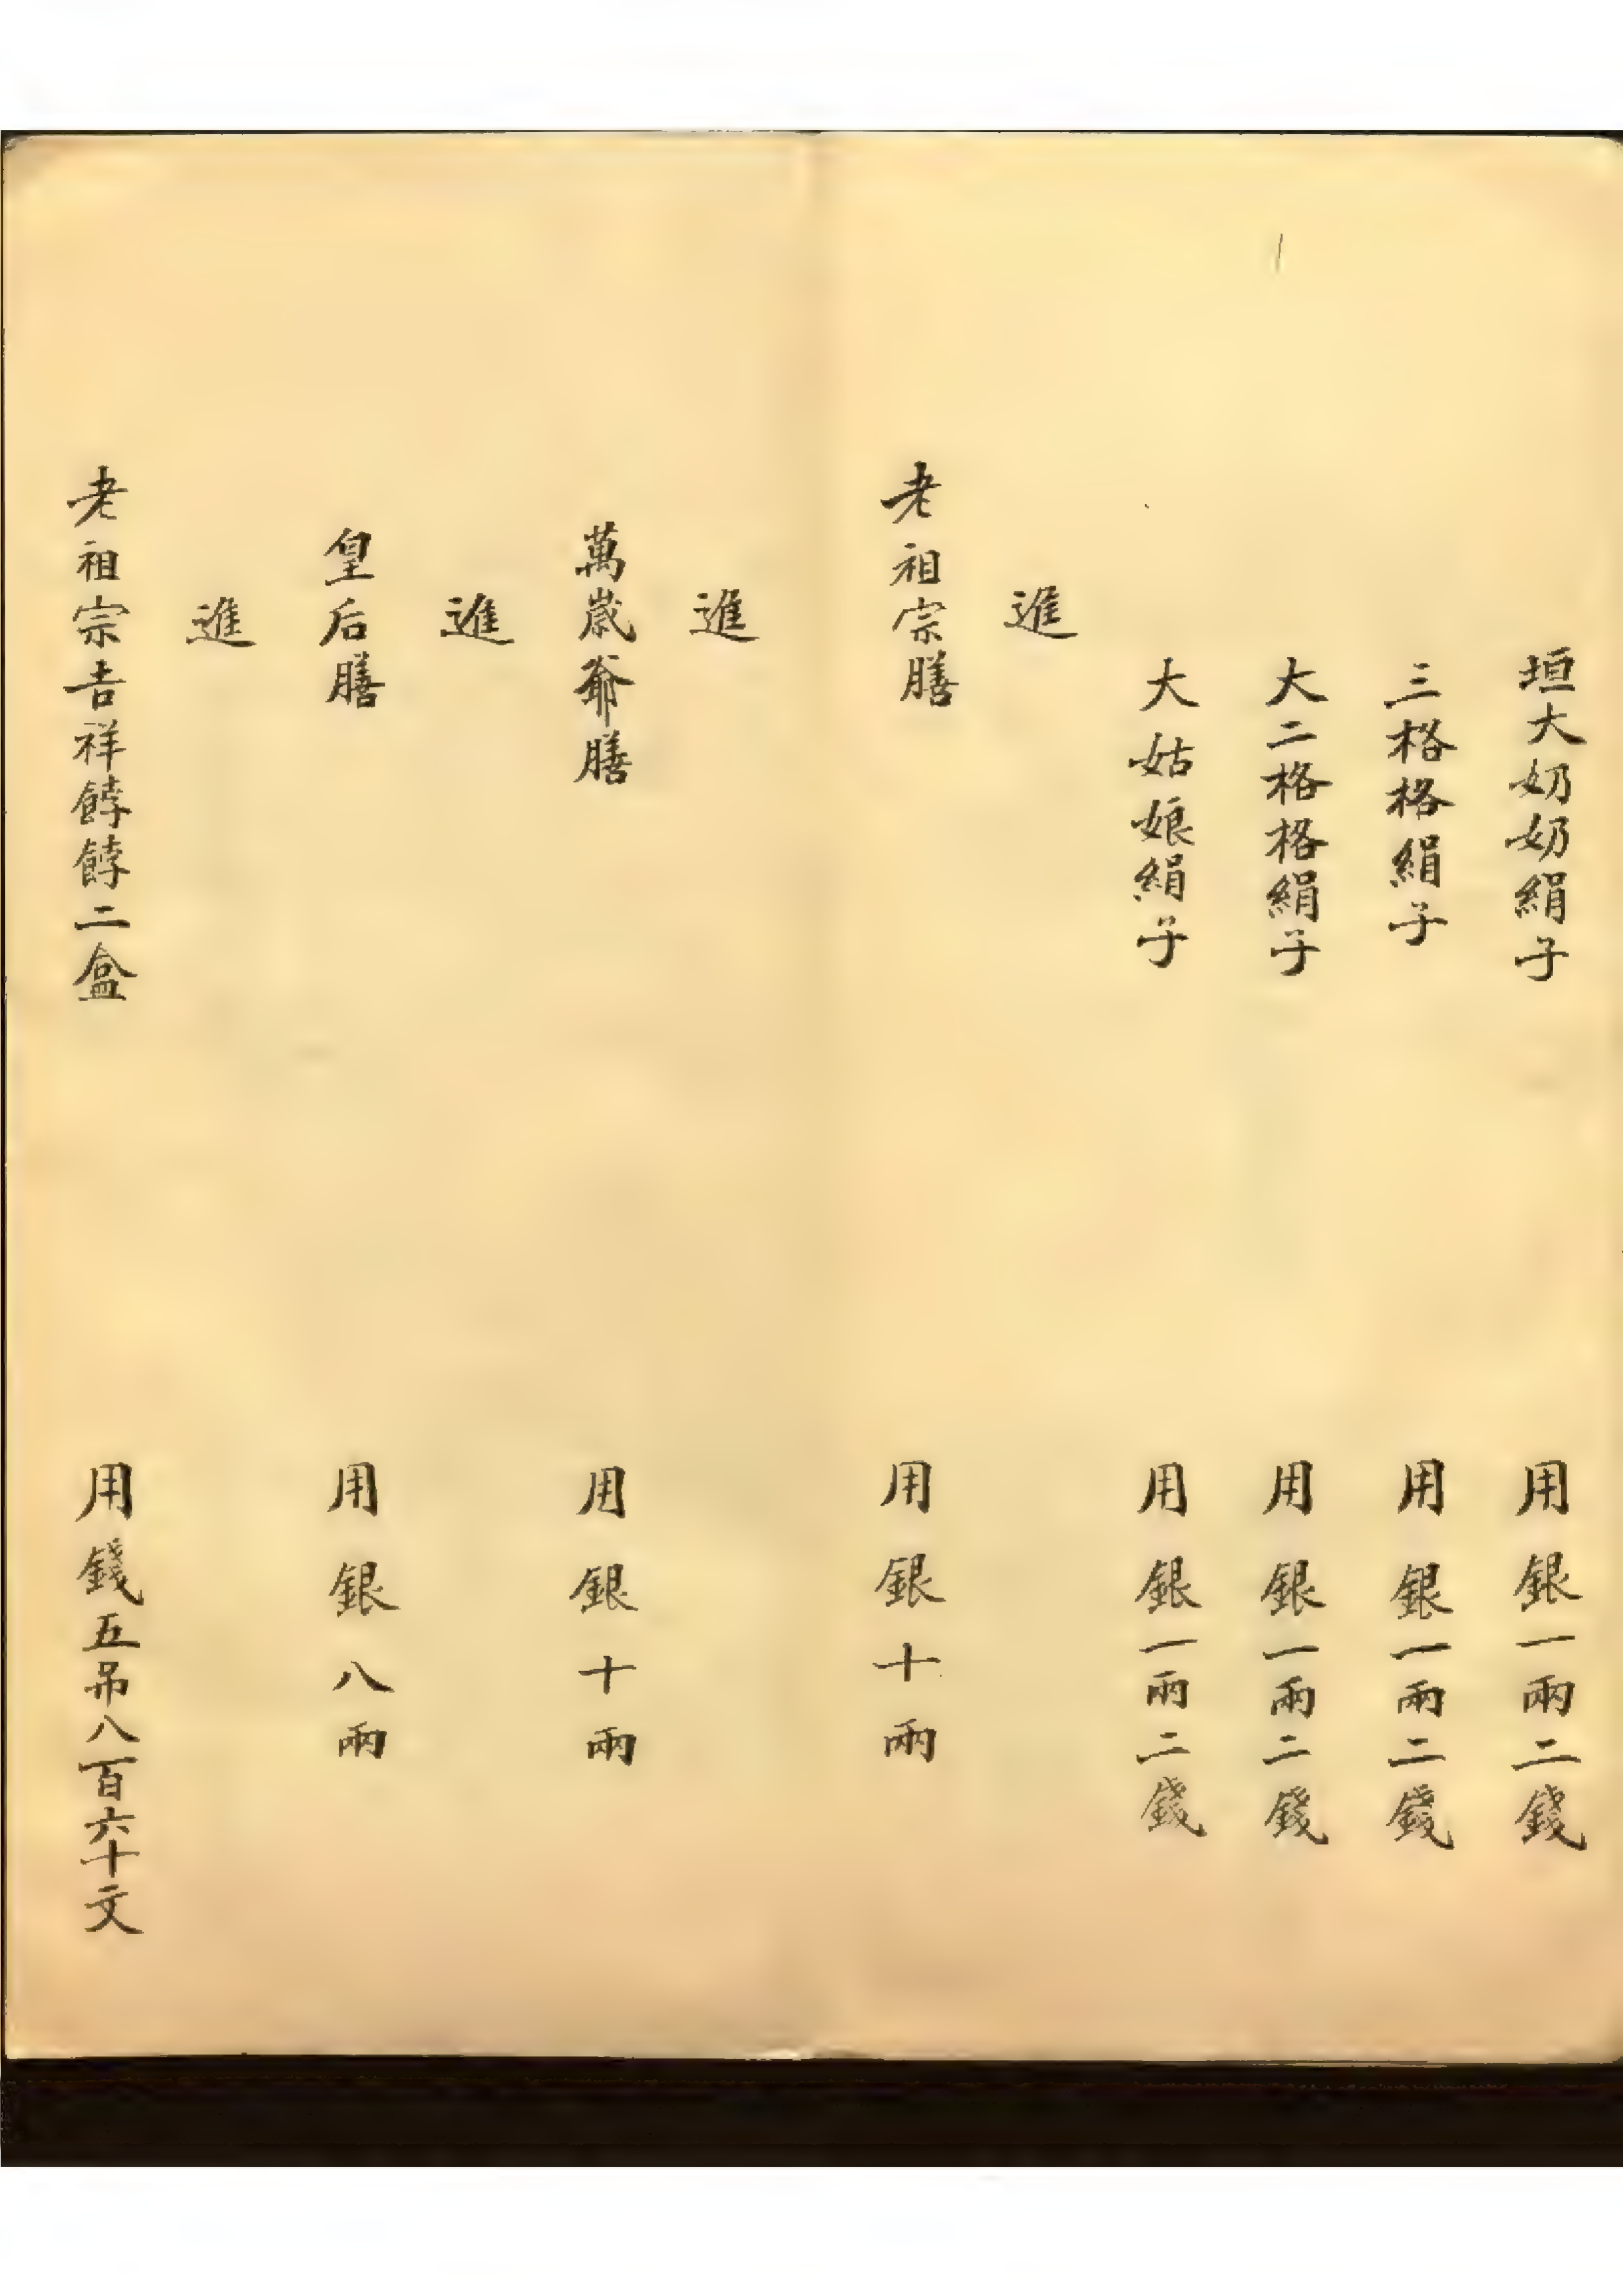 垣大奶奶絹子 用銀一兩二錢
三格格絹子 用銀一兩二錢
大二格格絹子 用銀一兩二錢
大姑娘絹子 用銀一兩二錢
進
老祖宗膳 用銀十兩
進
萬歲爺膳 用銀十兩
進
皇后膳 用銀八兩
進
老祖宗吉祥餑餑二盒 用錢五吊八百六十文